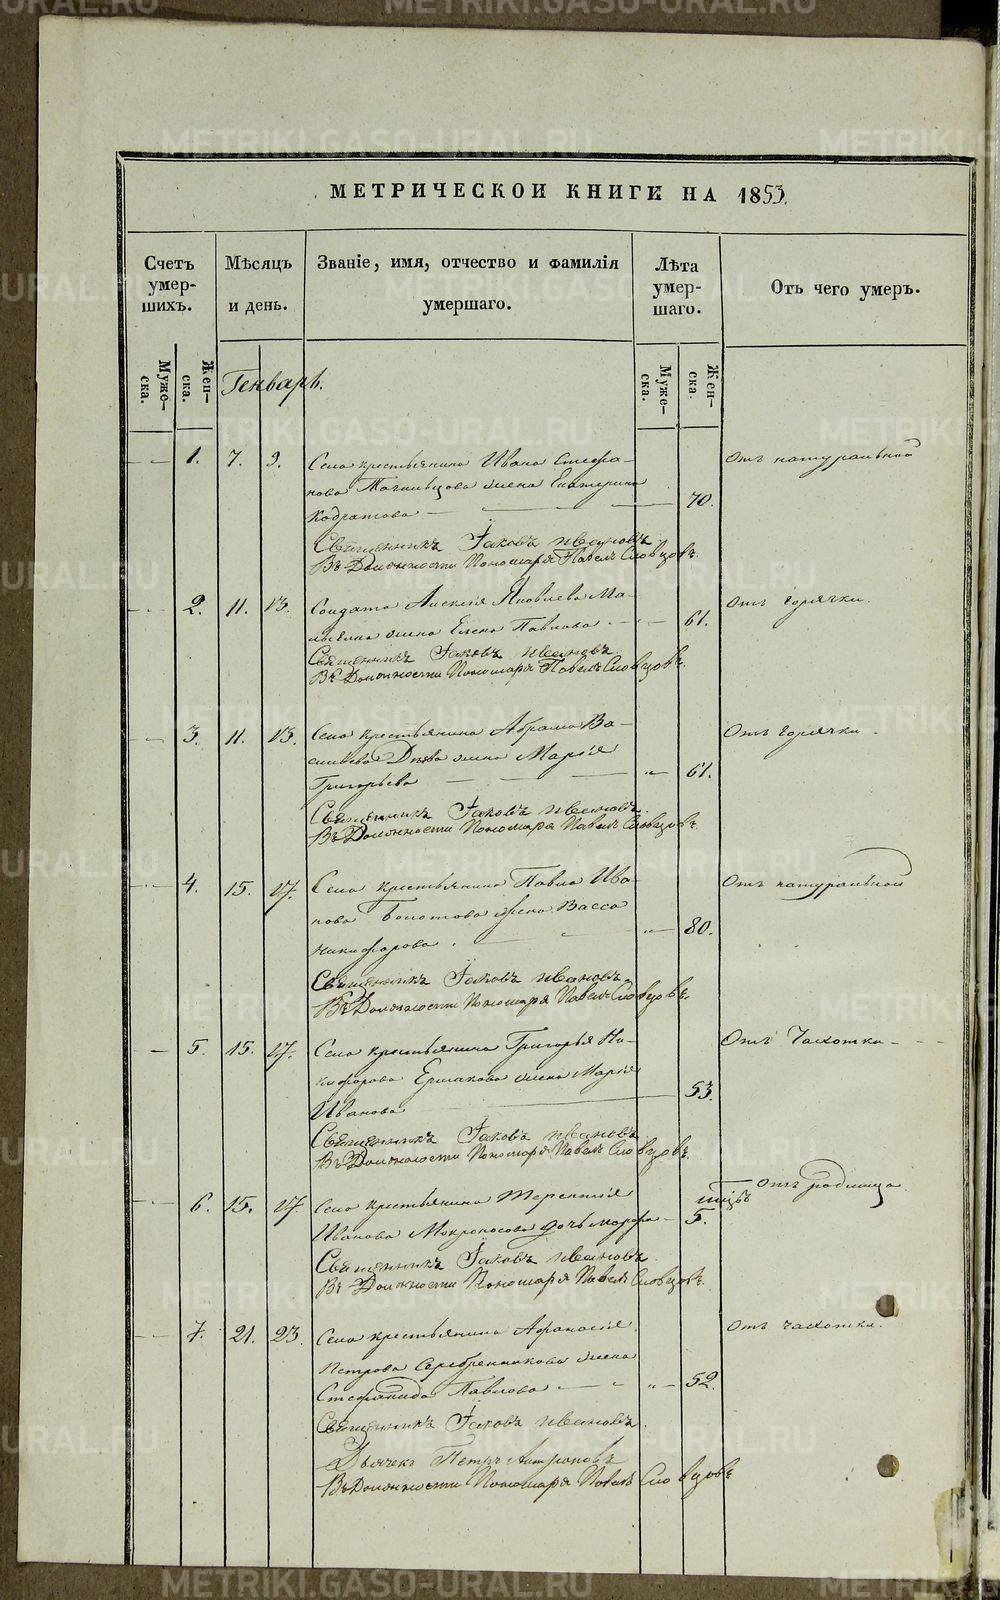 МЕТРИЧЕСКОЙ КНИГИ НА 1853.
Счетъ умер-шихъ.
Мѣсяцъ и день.
Званіе, имя, отчество и фамилія умершаго.
Лѣта умер-шаго.
Отъ чего умеръ.
Муже-ска.
Жен-ска.
Генварь.
Муже-ска.
Жен-ска.
1. 7. 9. Села крестьянина Ивана Стефа- Отъ натуральной
нова жена Екатерина
Кодратова 70.
Священникъ Іаковъ Ивановъ
Въ Должности Пономаря Павелъ Словцовъ.
2. 11. 13. Солдата Алексія Яковлева Ма- Отъ горячки.
жена Елена Павлова 61.
Священникъ Іаковъ Ивановъ
Въ Должности Пономаря Павелъ Словцовъ.
3. 11. 13. Села крестьянина Абрама Ва- Отъ горячки.
сильева жена Марія
Григорьева „ 61.
Священникъ Іаковъ Ивановъ
Въ Должности Пономаря Павелъ Словцовъ.
4. 15. 17. Села крестьянина Павла Ива- Отъ натуральной
нова Болотова жена Васса
Никифорова. „ 80.
Священникъ Іаковъ Ивановъ
Въ Должности Пономаря Павелъ Словцовъ.
5. 15. 17. Села крестьянина Григорья Ни- Отъ Чахотки
кифорова Ермакова жена Марія
Иванова 53.
Священникъ Іаковъ Ивановъ
Въ Должности Пономаря Павелъ Словцовъ.
6. 15. 17. Села крестьянина Терентія Отъ родимца
Иванова Мокроносова дочь Марфа 5.
Священникъ Іаковъ Ивановъ
Въ Должности Пономаря Павелъ Словцовъ.
7. 21. 23. Села крестьянина Афанасія Отъ чахотки.
Петрова Серебренникова жена
Стефанида Павлова „ 52.
Священникъ Іаковъ Ивановъ.
Дьячекъ Петръ
Въ Должности Пономаря Павелъ Словцовъ
METRIKI.GASO-URAL.RU